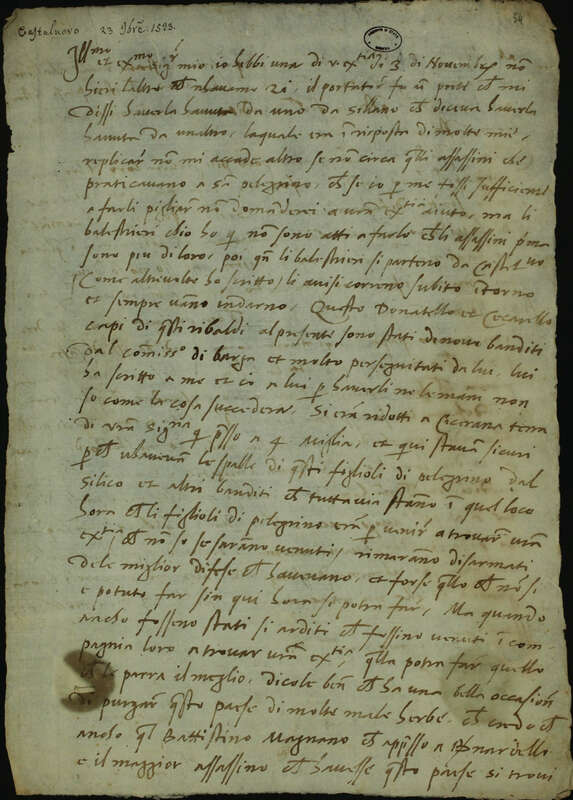 Castelnovo 23 9bre 1523.
54
Ill.mo
et ex.mo sig.r mio, io hebbi una di v. ex.tia di 3 di Novembre non
hieri l'altro che n'havamo 21, il portator fu un prete che mi
dissi haverla havuta da uno da Sillano che diceva haverla
havuta da un altro, laquale era in risposta di molte mie,
replicar non mi accade altro se non circa quelli assassini che
praticavano a San pelegrino, che se io per me fossi sufficiente
a farli pigliar non domanderei a vra ex.tia aiuto, ma li
balestrieri ch'io ho qui non sono atti a farlo che li assassini prima
sono piu di loro, poi quando li balestrieri si parteno da Castel.no
(come altrevolte ho scritto) li avisi correno subito intorno
et sempre vanno indarno, Questo Donatello et
capi di questi ribaldi al presente sono stati di novo banditi
dal comiss.o di barga et molto perseguitati da lui, lui
ha scritto a me et io a lui per haverli ne le mani non
so come la cosa succederà, Si eran ridotti a Cicerana terra
di vra Sig.ria qui presso a 4 miglia, et qui stavan sicuri
per che n'havevan le spalle di questi figlioli di pelegrino dal
Silico et altri banditi che tuttavia stanno in quel loco
hora che li figlioli di pelegrino eran per venir a trovar vra
ex.tia, che non so se saranno venuti, rimaranno disarmati
de le miglior difese che havevano, et forse quello che non si
e potuto far sin qui hora si potra far, Ma quando
ancho fosseno stati si arditi che fossino venuti in com-
pagnia loro a trovar vra ex.tia, quella potra far quello
che le parra il meglio, dicole ben che ha una bella occasion
di purgar questo paese di molte male herbe, che credo che
ancho quel Battistino Magnano che appresso a Bernardello
e il maggior assassino che havesse questo paese si trovi